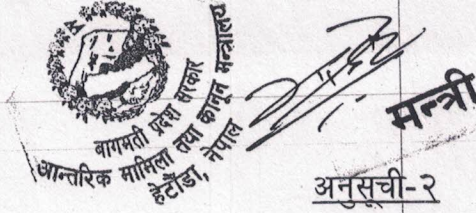 बागमती प्रदेश सरकार
आन्तरिक मामिला तथा कानून मन्त्रालय
हेटौंडा, नेपाल
मन्त्री
अनुसूची-२